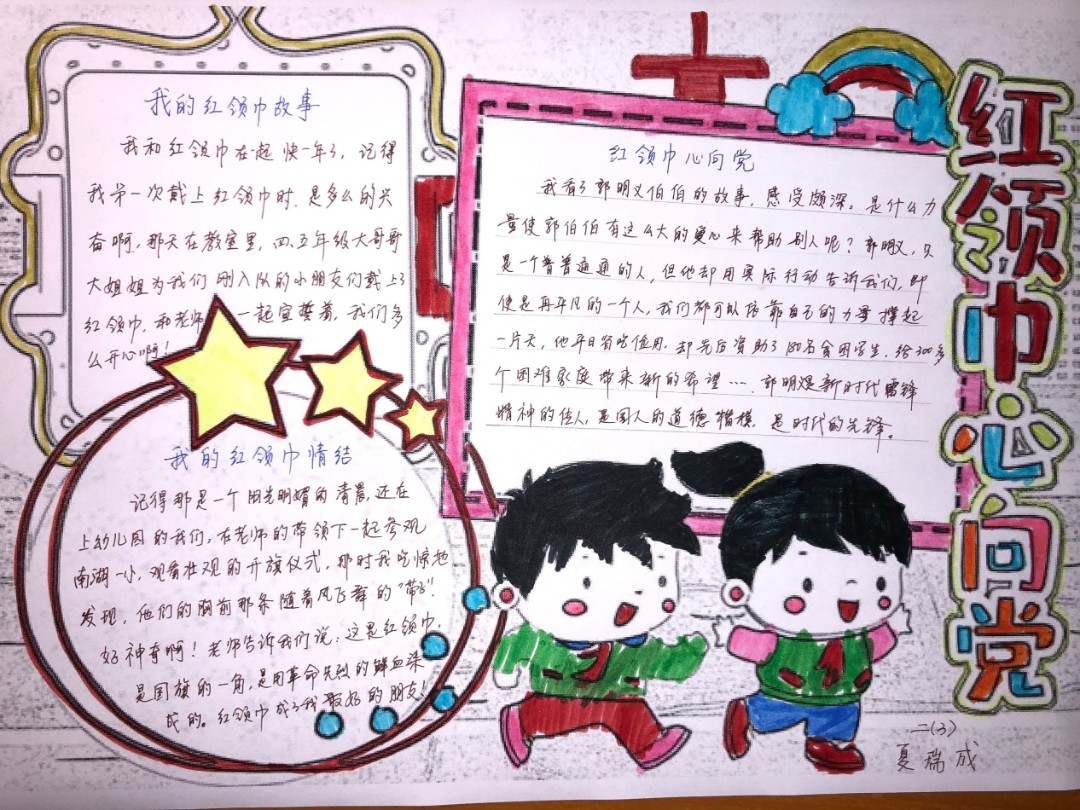 我的红领巾故事
我和红领巾在一起快一年了，记得
我第一次戴上红领巾时，是多么的兴
奋啊，那天在教室里，四、五年级大哥哥
大姐姐为我们刚入队的小朋友们戴上了
红领巾，和老师一起宣誓着，我们多
么开心啊！
我的红领巾情结
记得那是一个阳光明媚的清晨，还在
上幼儿园的我们，在老师的带领下一起参观
南湖一小，观看壮观的升旗仪式，那时我吃惊地
发现，他们的胸前那条随着风飞舞的“带子”
好神奇啊！老师告诉我们说：这是红领巾，
是国旗的一角，是用革命先烈的鲜血染
成的。红领巾成了我最好的朋友！
红领巾心向党
我看了郭明义伯伯的故事，感受颇深。是什么力
量使郭伯伯有这么大的爱心来帮助别人呢？郭明义，只
是一个普普通通的人，但他却用实际行动告诉我们，即
使是再平凡的一个人，我们都可以依靠自己的力量撑起
一片天，他平日省吃俭用，却先后资助了180名贫困学生，给300多
个困难家庭带来新的希望……郭明义是新时代雷锋
精神的传人，是国人的道德楷模，是时代的先锋。
红领巾心向党
二(3)
夏瑞成